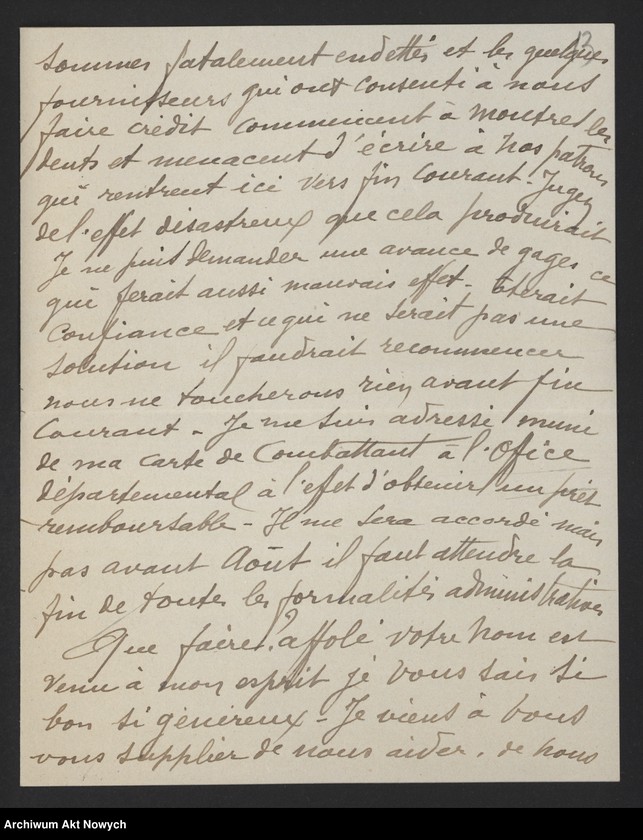 13
sommes fatalement endettés et les quelques
fournisseurs qui ont consenti à nous
faire crédit commencent à montrer les
dents et menacent d'écrire à nos patrons
qui rentrent ici vers fin courant - Jugez
de l'effet désastreux que cela produirait
Je ne puis demander une avance de gages ce
qui ferait aussi mauvais effet - ôterait
confiance et ce qui ne serait pas une
solution il faudrait recommencer
nous ne toucherons rien avant fin
courant - Je me suis adressé muni
de ma carte de Combattant à l'Office
départemental à l'effet d'obtenir un prêt
remboursable - Il me sera accordé mais
pas avant Août il faut attendre la
fin de toutes les formalités administratives
Que faire ? affolé votre nom est
venu à mon esprit je vous sais si
bon si généreux - Je viens à vous
vous supplier de nous aider. de nous
Archiwum Akt Nowych